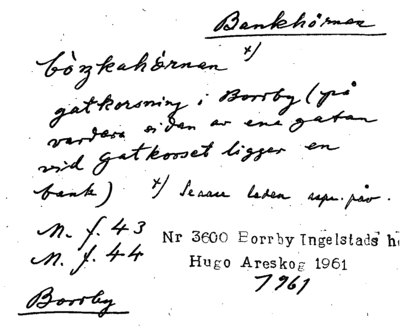 Bankhörnan
bòŋkahö̀rnan x)
gatkorsning i Borrby (på
vardera sidan av ena gatan
vid gatkorset ligger en
bank) x) Senare leden
M. f. 43
M. f. 44
Nr 3600 Borrby Ingelstads h
Hugo Areskog 1961
1961
Borrby